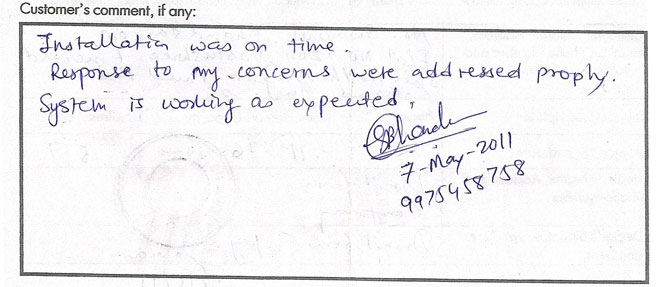 Customer's comment, if any:
Installation was on time.
Response to my concerns were addressed prophy.
System is working as expected.
7-May-2011
9975458758